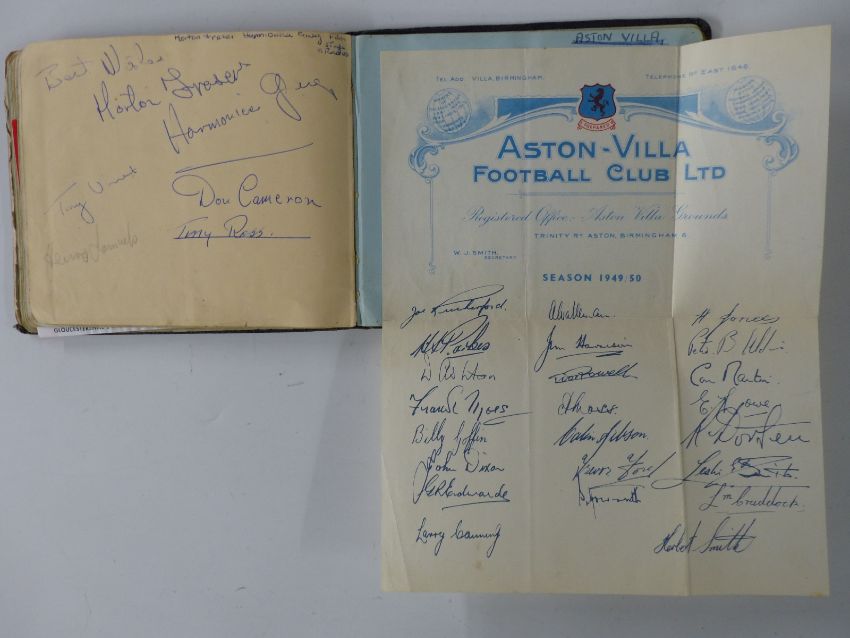 Morton Fraser Harmonica Gang
Best Wishes
Morton Fraser
Harmonica Gang
Tiny Vincent
Don Cameron
Tiny Ross.
Henry Samuels
ASTON VILLA
TEL. ADD. VILLA, BIRMINGHAM.
TELEPHONE Nº EAST 1646.
PREPARED
ASTON-VILLA
FOOTBALL CLUB LTD
Registered Office:- Aston Villa Grounds
TRINITY RD ASTON, BIRMINGHAM 6.
W. J. SMITH,
SECRETARY.
SEASON 1949/50
Joe Rutherford. H Jones
H.V. Parkes Jim Harrison
Con Martin.
Frank Moss E. A. Lowe
Billy Goffin Colin Gibson. R. Dorsett
John Dixon Trevor Ford Leslie Smith
G. R. Edwards L. M. Craddock.
Larry Canning Herbert Smith